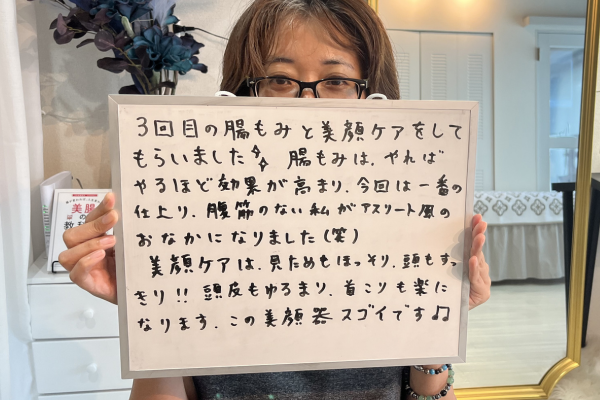 3回目の腸もみと美顔ケアをして
もらいました✨ 腸もみは、やれば
やるほど効果が高まり、今回は一番の
仕上り、腹筋のない私がアスリート風の
おなかになりました(笑)
美顔ケアは、見ためもほっそり、頭もすっ
きり!! 頭皮もゆるまり、首こりも楽に
なります。この美顔器スゴイです♫
美腸
の
教科